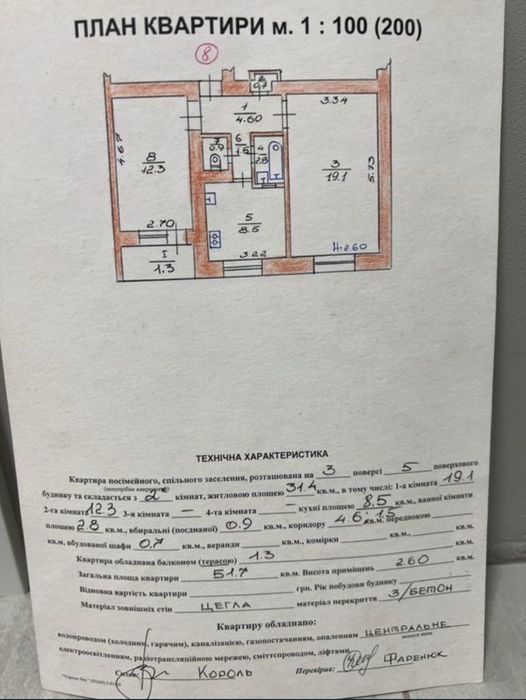 ПЛАН КВАРТИРИ м. 1 : 100 (200)
8
2
0.7
3.34
1
4.60
4.67
8
12.3
7
0.9
6
1.5
4
2.8
3
19.1
5.73
5
8.5
2.70
3.22
H=2.60
I
1.3
ТЕХНІЧНА ХАРАКТЕРИСТИКА
Квартира посімейного, спільного заселення, розташована на 3 поверсі 5 поверхового
будинку та складається з 2х кімнат, житловою площею 31.4 кв.м., в тому числі: 1-а кімната 19.1
2-га кімнат 12.3 3-я кімната — 4-та кімната — кухні площею 8.5 кв.м., ванної кімнати
площею 2.8 кв.м., вбиральні (поєднаної) 0.9 кв.м., коридору 4.6; 1.5 кв.м. передпокою
кв.м, вбудованої шафи 0.7 кв.м., веранди кв.м., комірки кв.м., кв.м.
Квартира обладнана балконом (терасою) 1.3 кв.м.
Загальна площа квартири 51.7 кв.м. Висота приміщень 260
Відновна вартість квартири грн. Рік побудови будинку
Матеріал зовнішніх стін ЦЕГЛА матеріал перекриття З/БЕТОН
Квартиру обладнано:
водопроводом (холодним, гарячим), каналізацією, газопостачанням, опаленням ЦЕНТРАЛЬНЕ
електроосвітленням, радіотрансляційною мережею, сміттєпроводом, ліфтами.
КОРОЛЬ Перевірив: ФАРЕНЮК